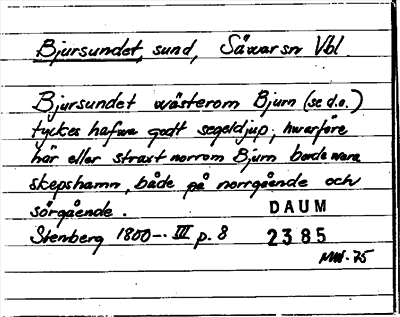 Bjursundet, sund, Säwar sn Vbl.
Bjursundet wästerom Bjurn (se d.o.)
tyckes hafwa godt segeldjup, hwarföre
här eller straxt norrom Bjurn borde wara
skepshamn, både på norrgående och
sörgående.
DAUM
Stenberg 1800-. III p. 8
2385
MW-75